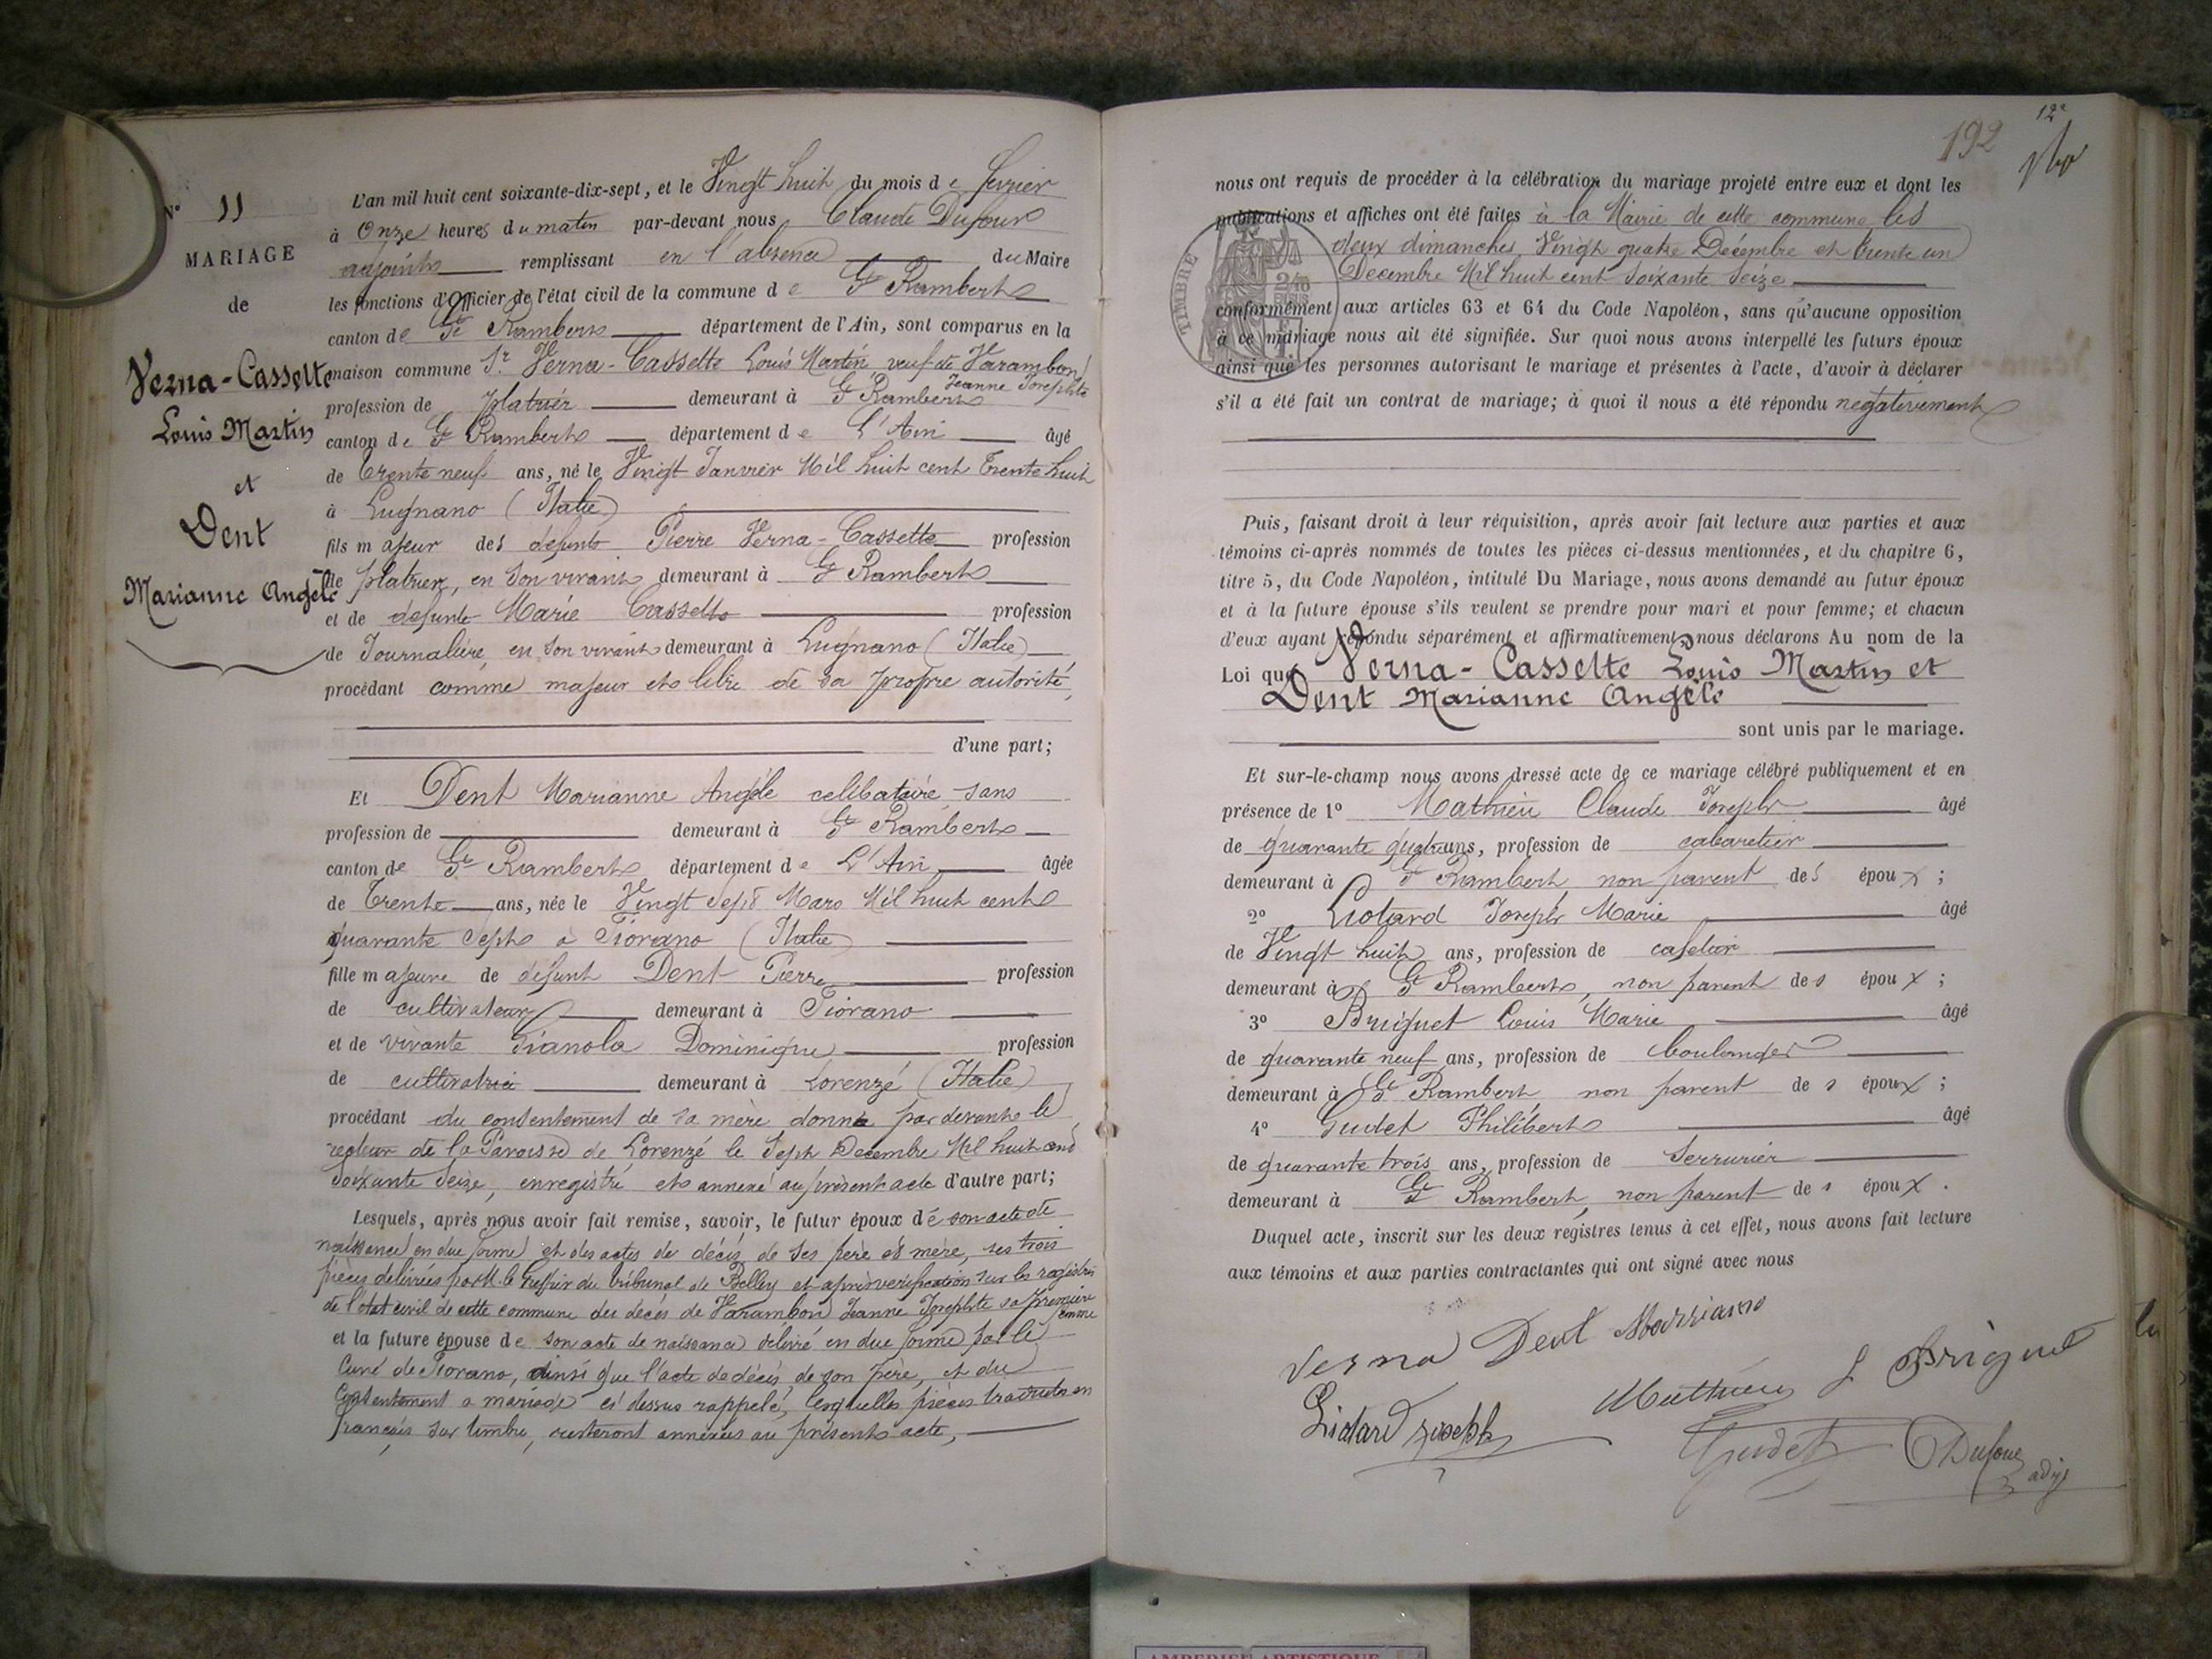 N° 11
MARIAGE
de
Verna-Cassette
Louis Martin
et
Dent
Marianne Angèle
L'an mil huit cent soixante-dix-sept, et le Vingt huit du mois de fevrier
à Onze heures du matin par-devant nous Claude Dufour
adjoint remplissant en l'absence du Maire
les fonctions d'Officier de l'état civil de la commune de St Rambert
canton de St Rambert département de l'Ain, sont comparus en la
maison commune Sr Verna-Cassette Louis Martin, veuf de Varambon
Jeanne Josephte
profession de platrier demeurant à St Rambert
canton de St Rambert département de L'Ain âgé
de trente neuf ans, né le Vingt Janvier Mil huit cent Trente huit
à Lugnano (Italie)
fils majeur des defunts Pierre Verna-Cassette profession
de platrier, en son vivant demeurant à St Rambert
et de defunte Marie Cassette profession
de Journalière, en son vivant demeurant à Lugnano (Italie)
procédant comme majeur et libre de sa propre autorité,
d'une part;
Et Dent Marianne Angèle celibataire sans
profession de demeurant à St Rambert
canton de St Rambert département de L'Ain âgée
de Trente ans, née le Vingt Sept Mars Mil huit cent
quarante Sept à Fiorano (Italie)
fille majeure de défunt Dent Pierre profession
de cultivateur demeurant à Fiorano
et de vivante Gianola Dominique profession
de cultivatrice demeurant à Lorenzé (Italie)
procédant du consentement de sa mère donné par devant le
recteur de la Paroisse de Lorenzé le Sept Decembre Mil huit cent
Soixante Seize, enregistré et annexé au présent acte d'autre part;
Lesquels, après nous avoir fait remise, savoir, le futur époux de son acte de
naissance en due forme et des actes de décès de ses père et mère, ses trois
pièces delivrées par M. le Greffier du tribunal de Belley et après verification sur les registres
de l'état civil de cette commune du décès de Varambon Jeanne Josephte sa première
femme
et la future épouse de son acte de naissance délivré en due forme par le
Curé de Fiorano, ainsi que l'acte de décès de son père, et du
Consentement a mariage ci dessus rappelé, lesquelles pièces traduites en
français sur timbre, resteront annexées au présent acte,
192
12e
nous ont requis de procéder à la célébration du mariage projeté entre eux et dont les
publications et affiches ont été faites à la Mairie de cette commune les
deux dimanches Vingt quatre Décembre et trente un
Decembre Mil huit cent Soixante Seize
TIMBRE
conformément aux articles 63 et 64 du Code Napoléon, sans qu'aucune opposition
à ce mariage nous ait été signifiée. Sur quoi nous avons interpellé les futurs époux
ainsi que les personnes autorisant le mariage et présentes à l'acte, d'avoir à déclarer
s'il a été fait un contrat de mariage; à quoi il nous a été répondu negativement
Puis, faisant droit à leur réquisition, après avoir fait lecture aux parties et aux
témoins ci-après nommés de toutes les pièces ci-dessus mentionnées, et du chapitre 6,
titre 5, du Code Napoléon, intitulé Du Mariage, nous avons demandé au futur époux
et à la future épouse s'ils veulent se prendre pour mari et pour femme; et chacun
d'eux ayant répondu séparément et affirmativement, nous déclarons Au nom de la
Loi que Verna-Cassette Louis Martin et
Dent Marianne Angèle
sont unis par le mariage.
Et sur-le-champ nous avons dressé acte de ce mariage célébré publiquement et en
présence de 1° Mathieu Claude Joseph âgé
de quarante quatre ans, profession de cabaretier
demeurant à St Rambert, non parent des époux;
2° Liotard Joseph Marie âgé
de Vingt huit ans, profession de cafetier
demeurant à St Rambert, non parent des époux;
3° Briguet Louis Marie âgé
de quarante neuf ans, profession de boulanger
demeurant à St Rambert non parent des époux;
4° Gudet Philibert âgé
de quarante trois ans, profession de Serrurier
demeurant à St Rambert, non parent des époux.
Duquel acte, inscrit sur les deux registres tenus à cet effet, nous avons fait lecture
aux témoins et aux parties contractantes qui ont signé avec nous
Verna Dent Marriano
Mathieu L Briguet
Liotard Joseph
Gudet Dufour adj
AMPERIEU ARTISTIQUE